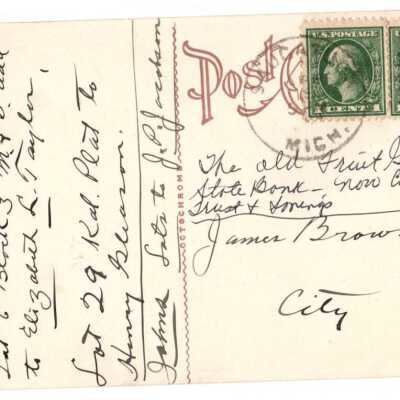 Lot 6 Block 3 M & O. add
to Elizabeth L. Taylor,
Lot 29 Kal. Plat to
Henry Gleason.
Johns Lots to J. P. Jacobson
OCTOCHROME
POST
MICH.
U.S. POSTAGE
CENTS
The Old Fruit
State Bank — now
Trust & Savings
James Brow
City